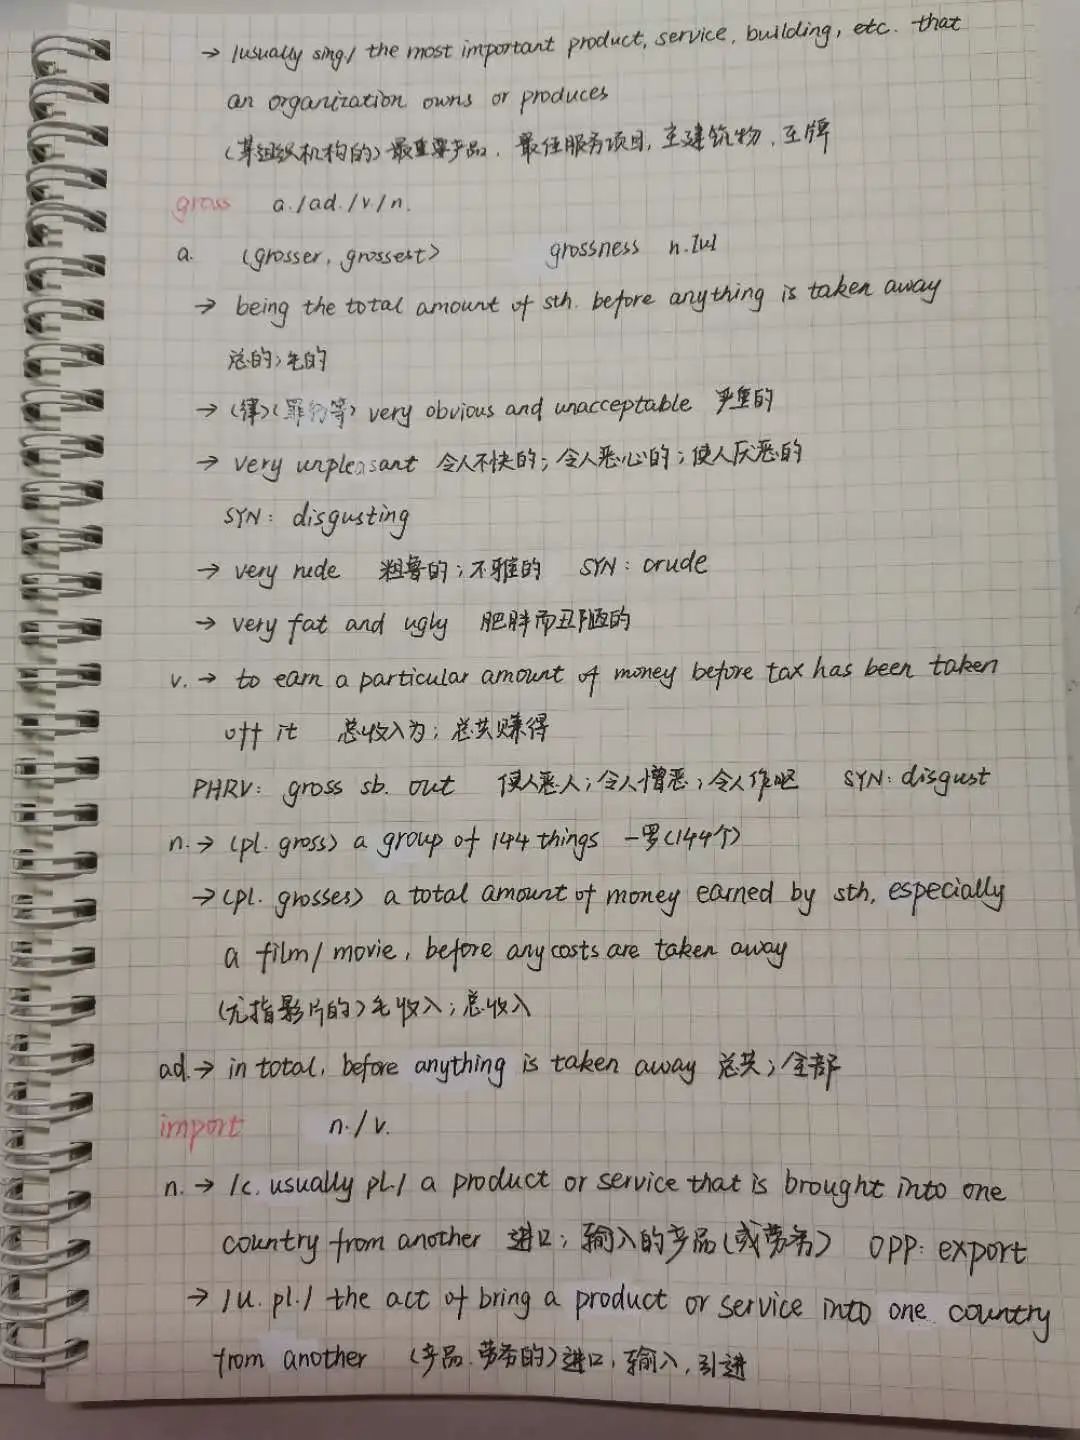 → /usually sing./ the most important product, service, building, etc. that
an organization owns or produces
(某组织机构的) 最重要产品, 最佳服务项目, 主建筑物, 王牌
gross a./ad./v./n.
a. (grosser, grossest) grossness n.[u]
→ being the total amount of sth. before anything is taken away
总的;毛的
→ (律)(罪行等) very obvious and unacceptable 严重的
→ very unpleasant 令人不快的;令人恶心的;使人厌恶的
SYN: disgusting
→ very rude 粗鲁的;不雅的 SYN: crude
→ very fat and ugly 肥胖而丑陋的
v. → to earn a particular amount of money before tax has been taken
off it 总收入为;总共赚得
PHRV: gross sb. out 使人恶人;令人憎恶;令人作呕 SYN: disgust
n. → (pl. gross) a group of 144 things 一罗(144个)
→ (pl. grosses) a total amount of money earned by sth, especially
a film/movie, before any costs are taken away
(尤指影片的) 毛收入;总收入
ad. → in total, before anything is taken away 总共;全部
import n./v.
n. → /c. usually pl./ a product or service that is brought into one
country from another 进口;输入的产品(或劳务) OPP: export
→ /u. pl./ the act of bring a product or service into one country
from another (产品.劳务的) 进口,输入,引进